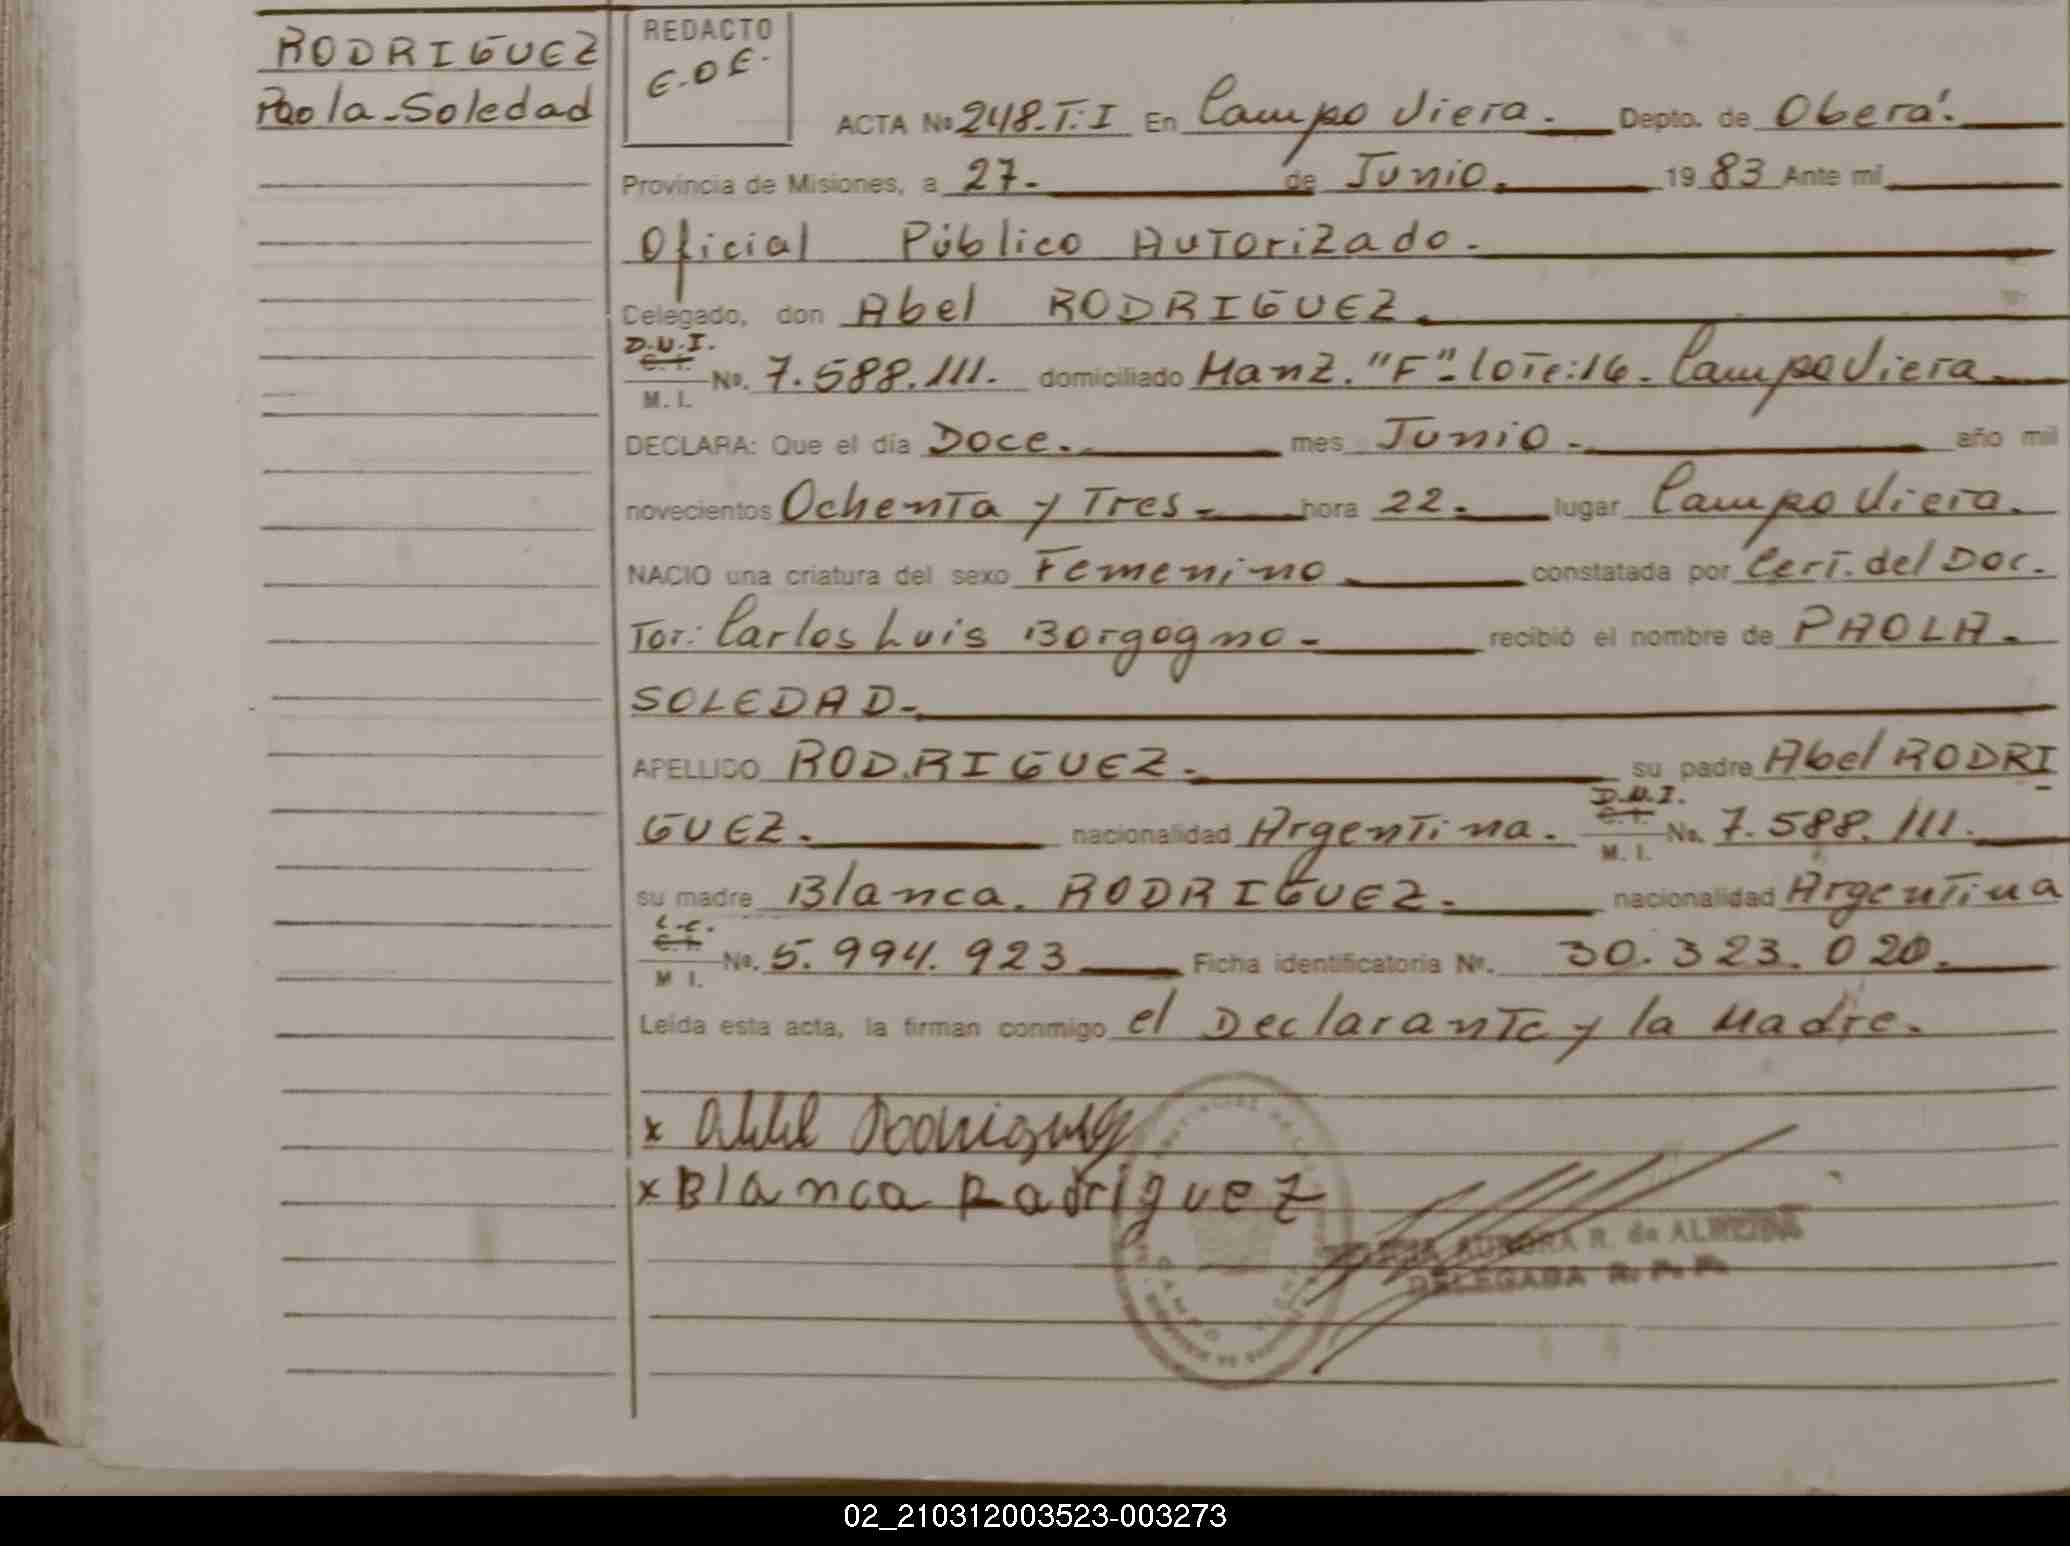 RODRIGUEZ
Paola-Soledad
REDACTO
E.O.E.
ACTA No 248-T:I En Campo Viera. Depto. de Oberá.
Provincia de Misiones, a 27. de Junio. 19 83 Ante mi
Oficial Público AuTorizado.
Celegado, don Abel RODRIGUEZ.
D.N.I.
C.I.
No. 7.588.111. domiciliado Manz. "F"-loTe:16. Campo Viera
M. I.
DECLARA: Que el día Doce. mes Junio. año mil
novecientos OchenTa y Tres- hora 22. lugar Campo Viera.
NACIO una criatura del sexo Femenino constatada por CerT. del Doc.
Tor: Carlos Luis Borgogno- recibió el nombre de PAOLA.
SOLEDAD-
APELLIDO RODRIGUEZ. su padre Abel RODRI
GUEZ. nacionalidad ArgenTina. D.N.I. C.I. No. 7.588.111.
M. I.
su madre Blanca. RODRIGUEZ. nacionalidad ArgenTina
L.C.
C.I.
No. 5.994.923 Ficha identificatoria Nº. 30.323.020.
M I.
Leída esta acta, la firman conmigo el DeclaranTe y la Madre.
x Abel Rodriguez
x Blanca Radriguez
AURORA R. de ALMEIDA
DELEGADA R. P. P.
CAMPO
02_210312003523-003273